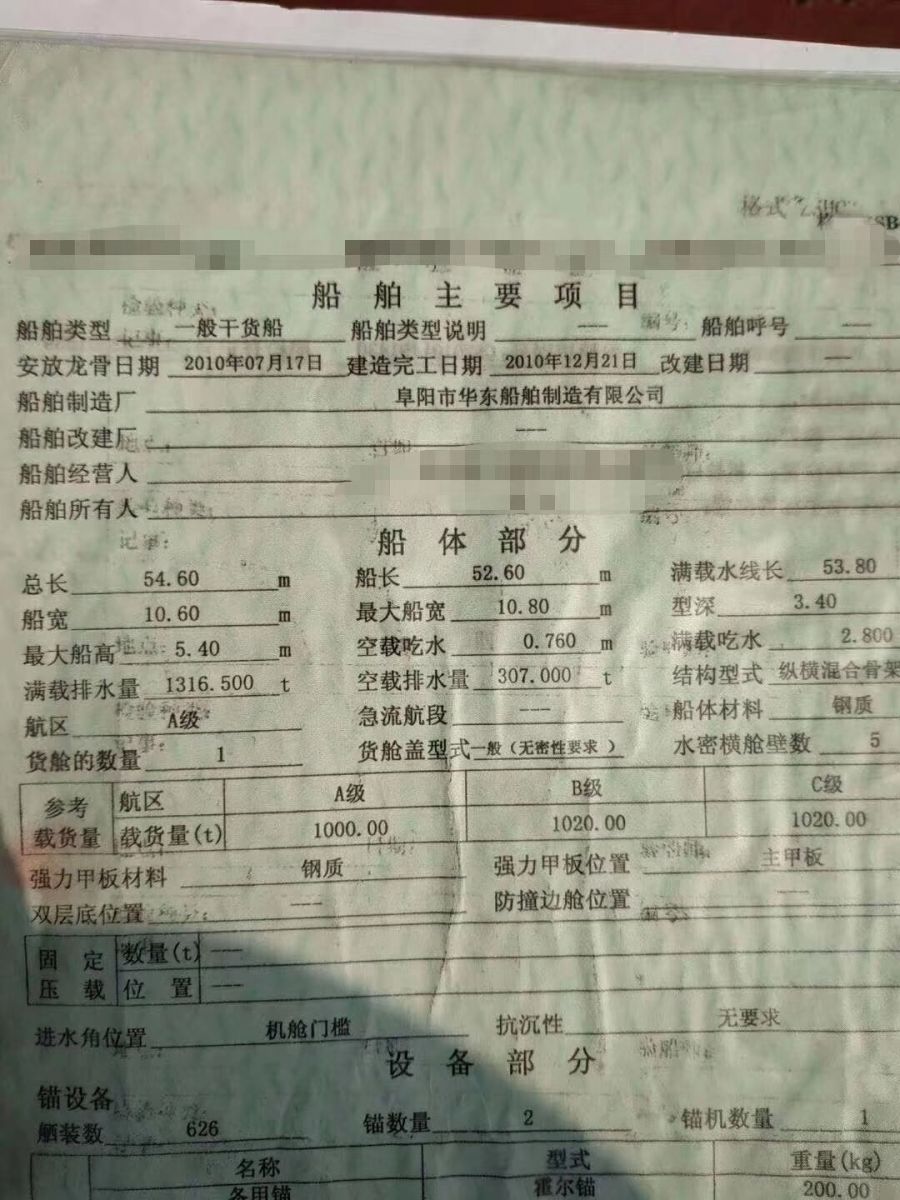 船 舶 主 要 项 目
船舶类型 一般干货船 船舶类型说明 --- 船舶呼号 ---
安放龙骨日期 2010年07月17日 建造完工日期 2010年12月21日 改建日期 ---
船舶制造厂 阜阳市华东船舶制造有限公司
船舶改建厂 ---
船舶经营人
船舶所有人
船 体 部 分
总长 54.60 m 船长 52.60 m 满载水线长 53.80
船宽 10.60 m 最大船宽 10.80 m 型深 3.40
最大船高 5.40 m 空载吃水 0.760 m 满载吃水 2.800
满载排水量 1316.500 t 空载排水量 307.000 t 结构型式 纵横混合骨架
航区 A级 急流航段 --- 船体材料 钢质
货舱的数量 1 货舱盖型式 一般（无密性要求 ） 水密横舱壁数 5
参考载货量 航区 A级 B级 C级
载货量(t) 1000.00 1020.00 1020.00
强力甲板材料 钢质 强力甲板位置 主甲板
双层底位置 --- 防撞边舱位置 ---
固 定 数量(t) ---
压 载 位 置 ---
进水角位置 机舱门槛 抗沉性 无要求
设 备 部 分
锚设备
舾装数 626 锚数量 2 锚机数量 1
名称 型式 重量(kg)
备用锚 霍尔锚 200.00